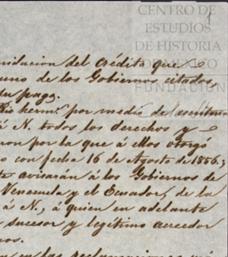 CENTRO DE
ESTUDIOS
DE HISTORIA
DE MÉXICO
FUNDACIÓN
nsilacion del crédito que
uno de los Gobiernos citados
su pago.
por medio de escritura
á N. todos los derechos y
ron por la que á ellos otorgó
o con fecha 16 de Agosto de 1856;
te avisarán á los Gobiernos de
Venezuela y el Ecuador, de la
á N., á quien en adelante
sucesor y legítimo acreedor
nos.